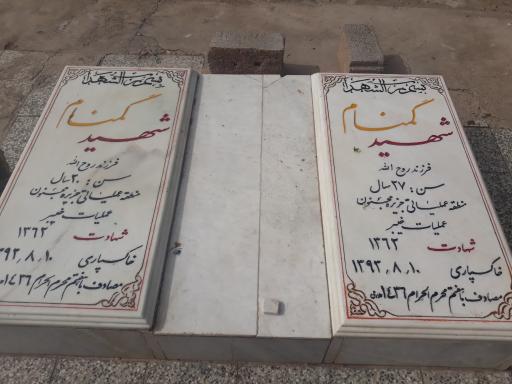 بسم رب الشهدا
شهید گمنام
فرزند روح الله
سن: ۲۷ سال
منطقه عملیاتی: جزیره مجنون
عملیات خیبر
شهادت ۱۳۶۲
خاکسپاری ۱۳۹۳٫۸٫۱۰
مصادف با هفتم محرم الحرام ۱۴۳۶
بسم رب الشهدا
شهید گمنام
فرزند روح الله
سن: ۲۰ سال
منطقه عملیاتی: جزیره مجنون
عملیات خیبر
شهادت ۱۳۶۲
خاکسپاری ۱۳۹۳٫۸٫۱۰
مصادف با هفتم محرم الحرام ۱۴۳۶